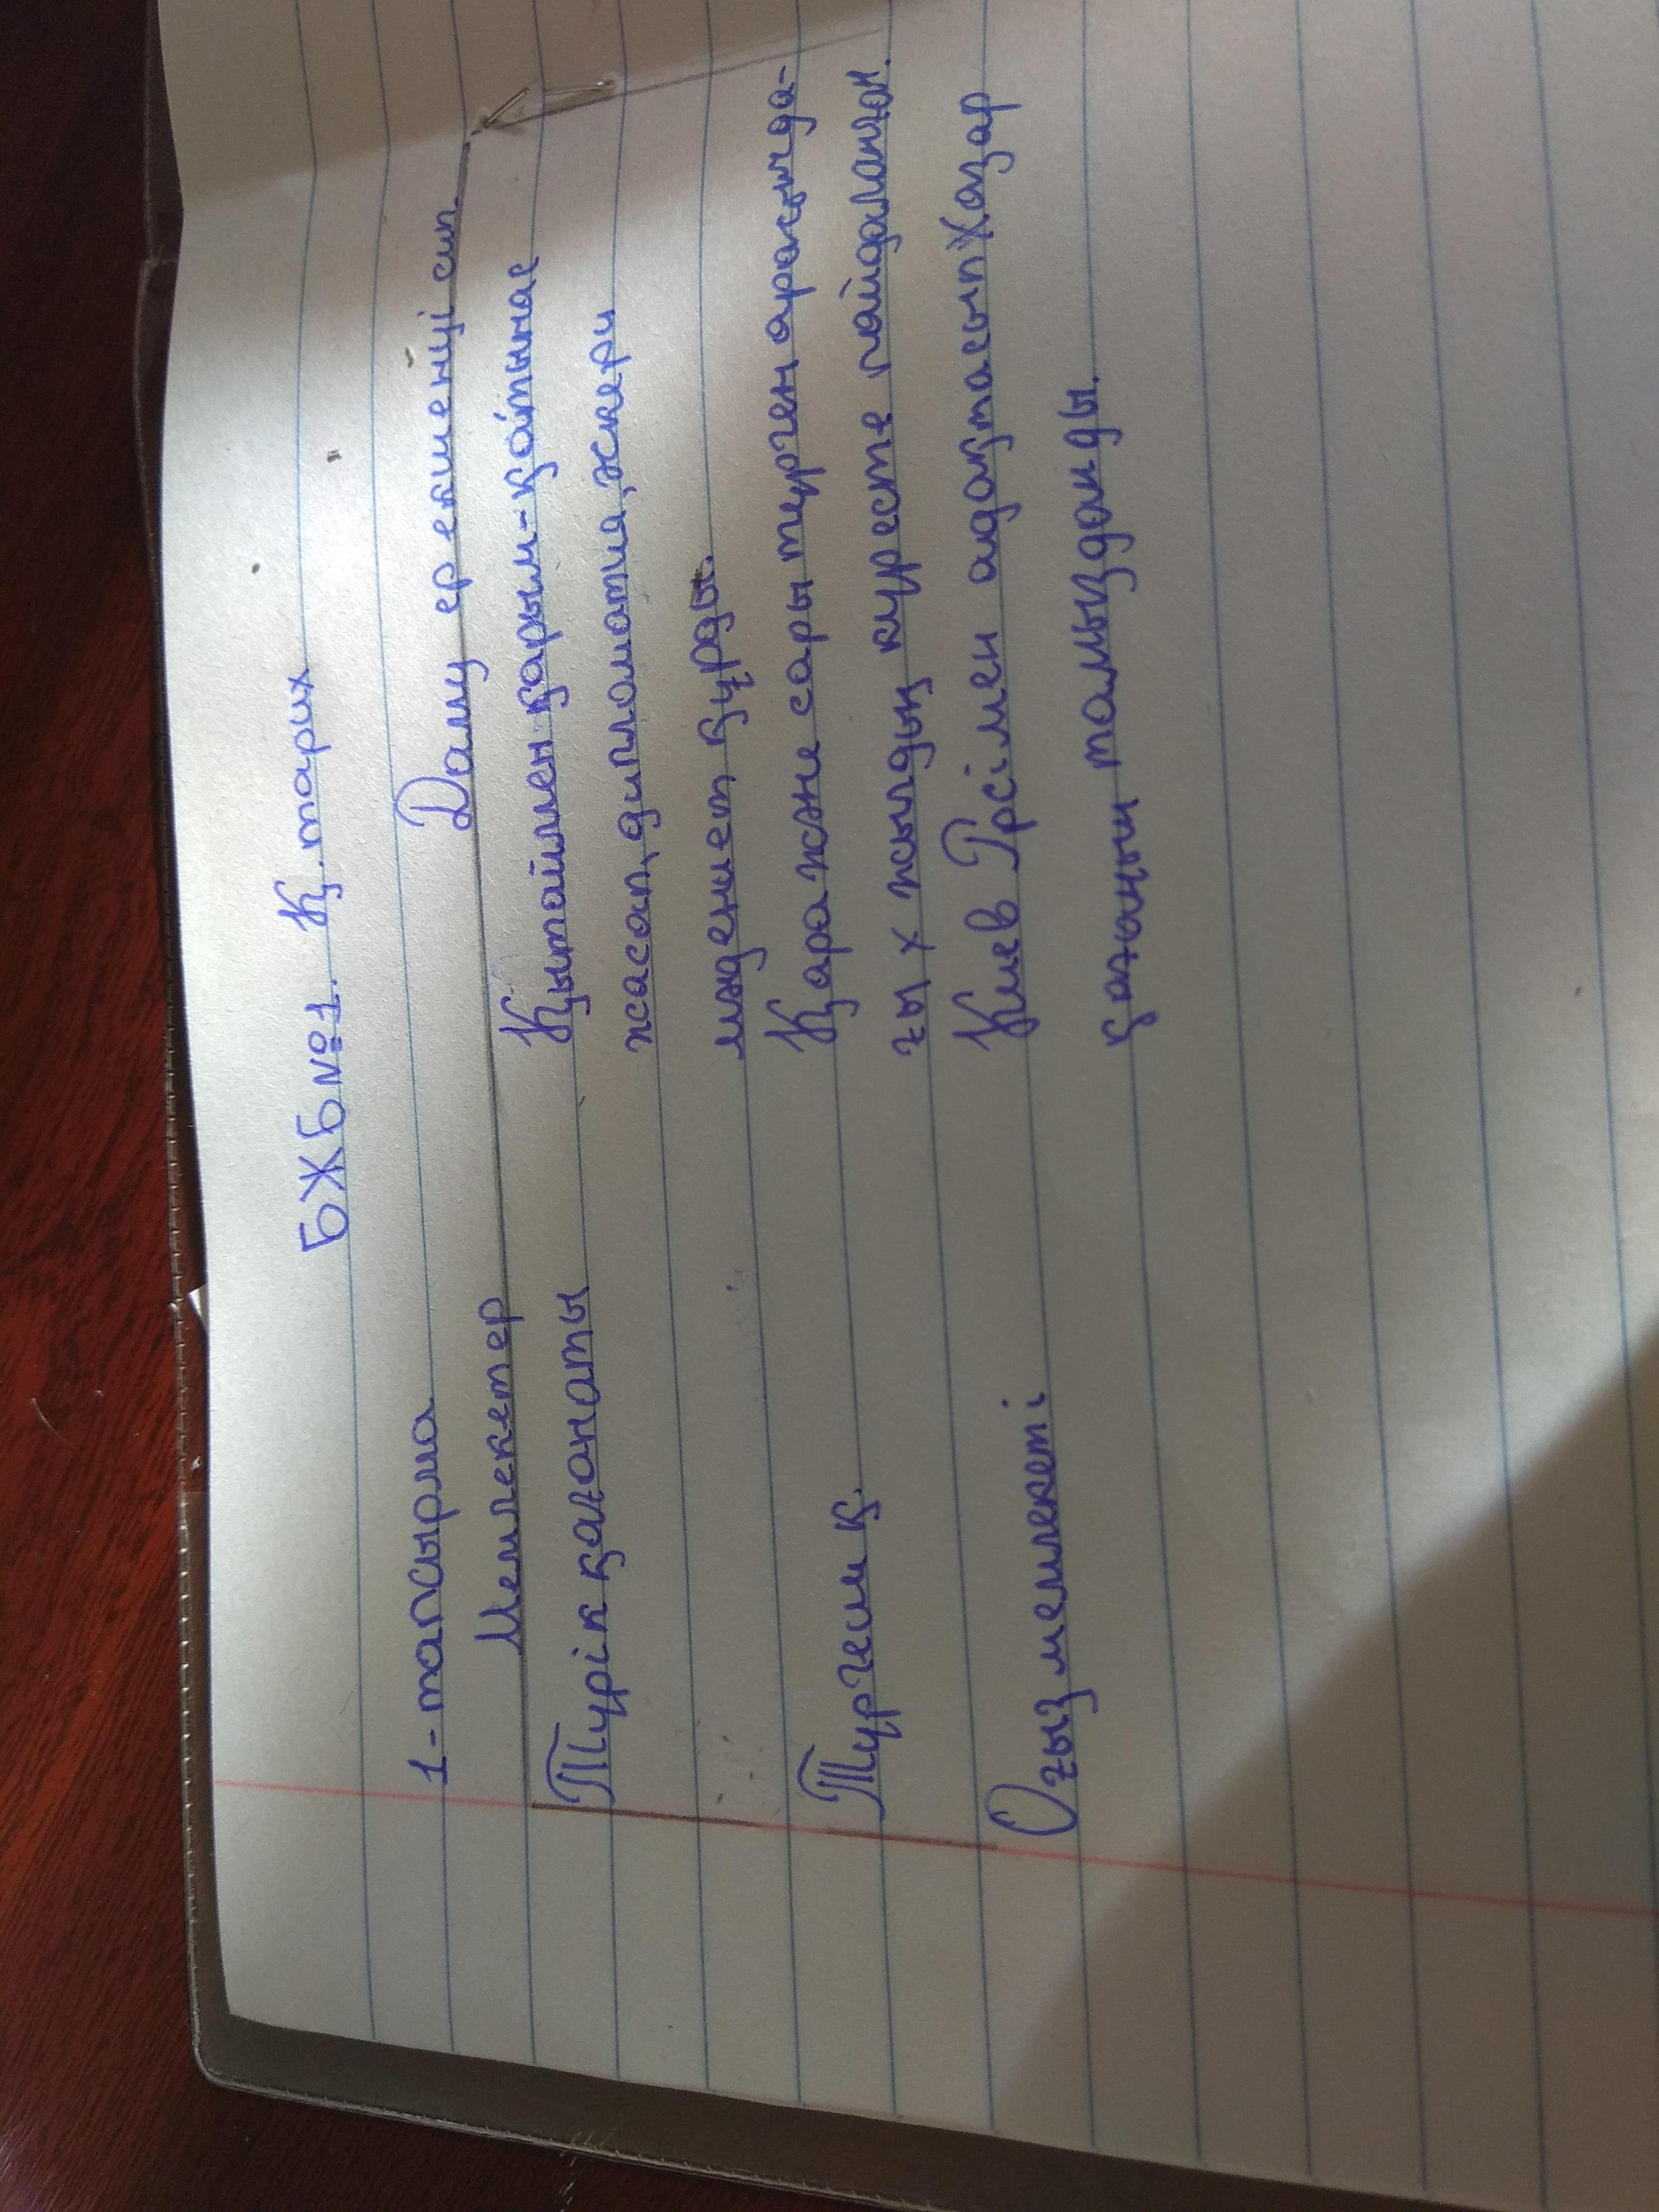 БЖБ№1. Қ.тарих
1-тапсырма
Мемлекеттер Даму ерекшенці сип.
Түрік қағанаты Қытаймен қарым-қатынас
жасап, дипломатия, әскери
мәдениет құрды.
Түргеш қ. Қара және сары түрген арасында-
ғы х жылдық күресте пайдаланған.
Оғыз мемлекеті Киев Русімен одақтасып Хазар
қағанын талқандады.